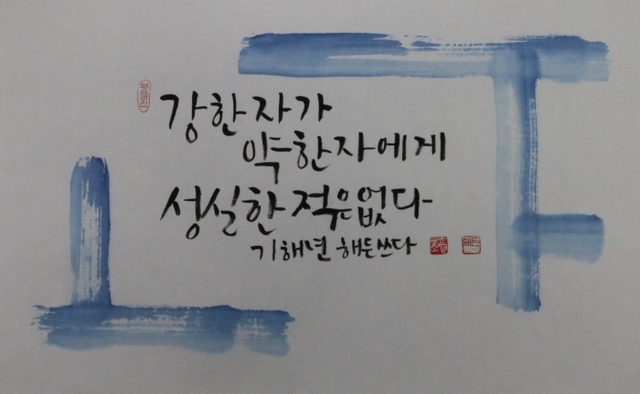 강한자가
약한자에게
성실한 적은 없다
기해년 해든쓰다